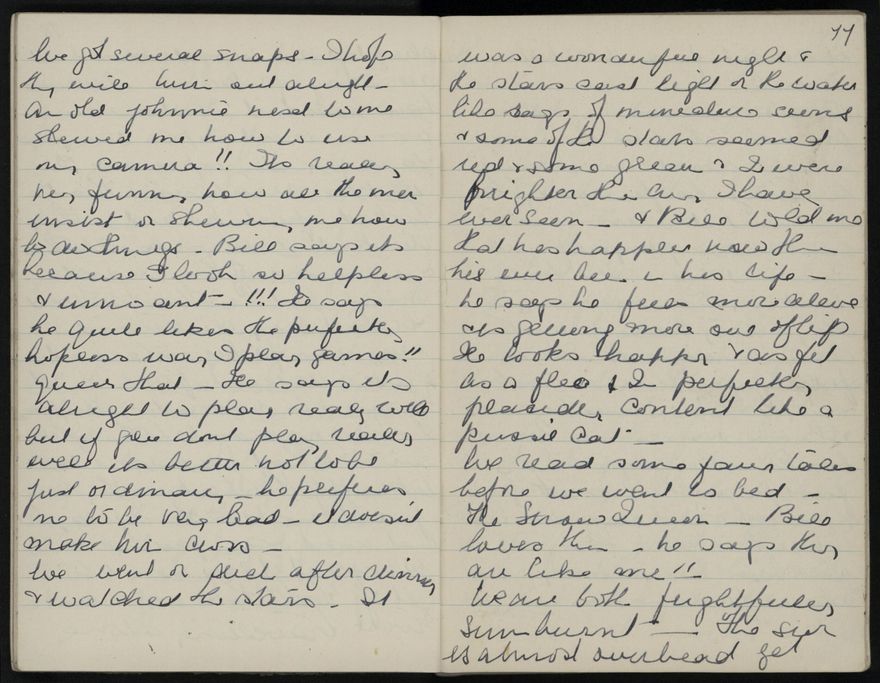 We got several snaps - I hope
they will turn out alright -
An old Johnnie next to me
shewed me how to use
my camera!! Its really
very funny how all the men
insist on shewing me how
to do things - Bill says its
because I look so helpless
& innocent - !!! He says
he quite likes the perfectly
hopeless way I play games!!
Queer that - He says its
alright to play really well
but if you dont play really
well its better not to be
just ordinary - he prefers
me to be very bad - it doesn't
make him cross -
We went on deck after dinner
& watched the stars. It
77
was a wonderful night &
the stars cast light on the water
like rays of miniature moons
& some of the stars seemed
red & some green & were
brighter than any I have
ever seen - & Bill told me
that hes happier now than
his ever been in his life -
he says he feels more alive
& is getting more out of life
He looks happy & as fit
as a flea & I'm perfectly
placidly content like a
pussie cat -
We read some fairy tales
before we went to bed -
The Snow Queen - Bill
loves them - he says they
are like me!!
We are both frightfully
sunburnt - The sun
is almost overhead yet